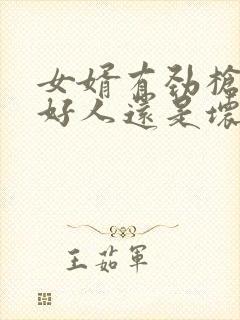 女婿有劲槍
好人還是壞
王茹軍